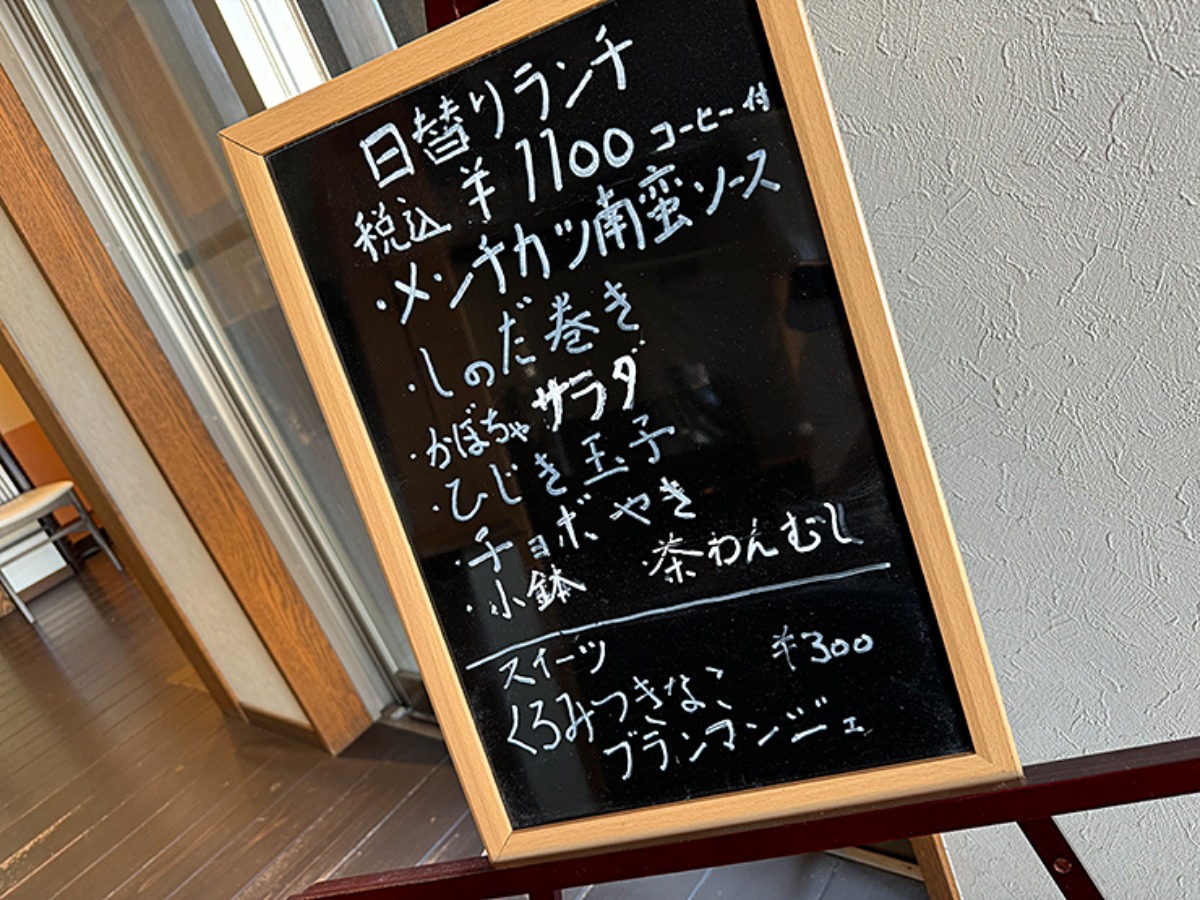 日替りランチ
税込 ¥1100 コーヒー付
・メンチカツ南蛮ソース
・しのだ巻き
・かぼちゃサラダ
・ひじき玉子
・チョボやき
・小鉢 茶わんむし
スイーツ ¥300
くるみつきなこ
ブランマンジェ